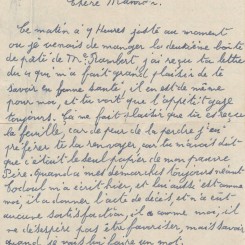 Chère Maman.
Ce matin à 9 Heures juste au moment
ou je venais de manger la deuxième boite
de pâté de Mr Rambert, j'ai reçu ta lettre
du 4 qui m'a fait grand plaisir de te
savoir en bonne santé, il en est de même
pour moi, et tu vois que l'appétit gaze
toujours. Ca me fait plaisir que tu es reçu
la feuille, car de peur de la perdre j'en
préférer te la renvoyer, car tu m'avais dit
que c'était le seul papier de mon pauvre
Père. Quand a mes démarches toujours néant
m'a écrit hier, et lui aussi est comme
moi, il a donner l'acte de décès et n'a eut
aucune satisfaction, il a comme moi, il
ne désespère pas être favoriser, mais savoir
quand je vais lui faire un mot.